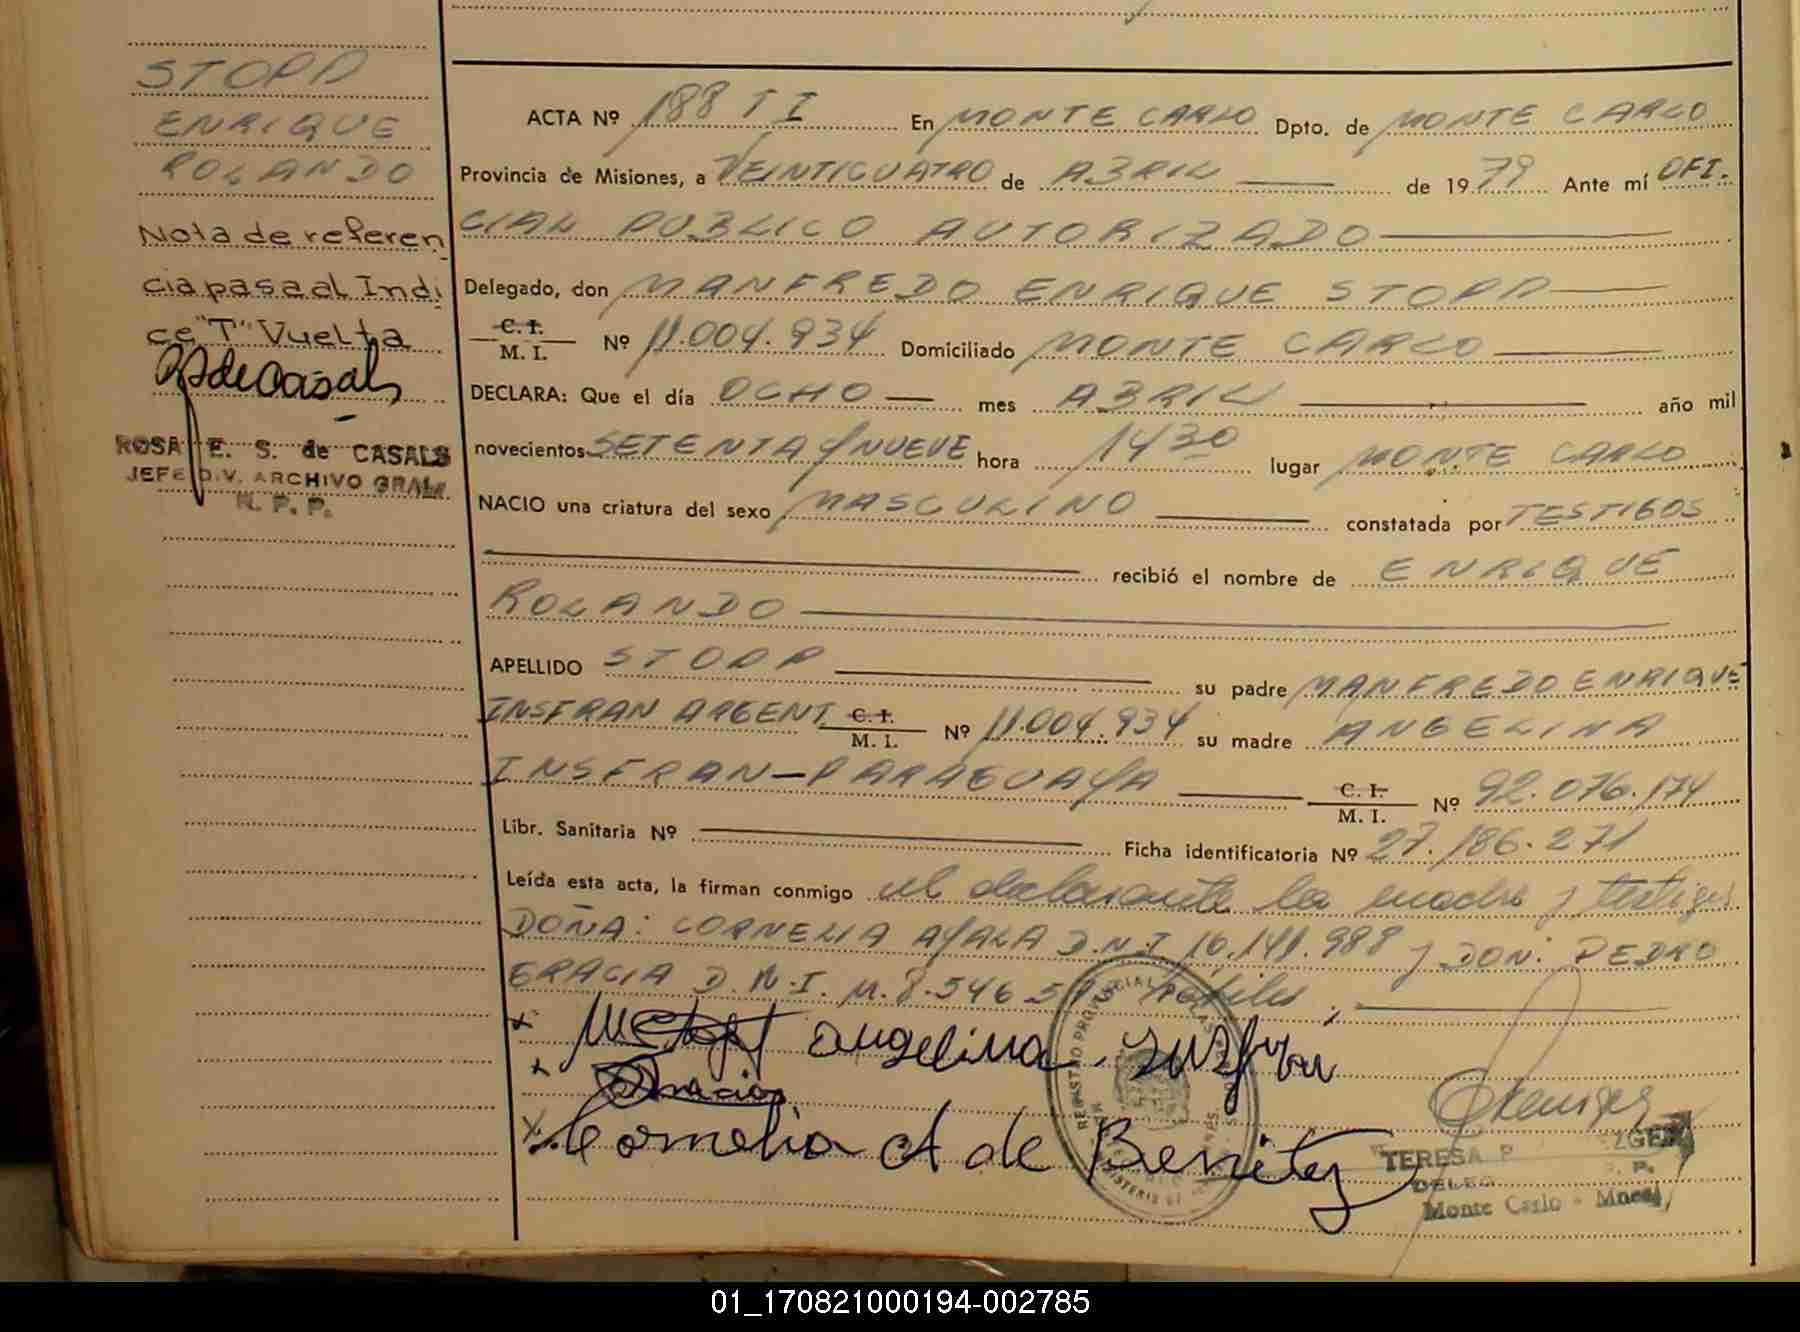 STOPP
ENRIQUE
ROLANDO
Nota de referen
cia pasa al Indi
ce "T" Vuelta
RSdeCasals
ROSA E. S. de CASALS
JEFE DIV. ARCHIVO GRAL.
R. P. P.
ACTA Nº 188 T I En MONTE CARLO Dpto. de MONTE CARLO
Provincia de Misiones, a VEINTICUATRO de ABRIL de 1979 Ante mí OFI.
CIAL PUBLICO AUTORIZADO
Delegado, don MANFREDO ENRIQUE STOPP
C. I. M. I. Nº 11.004.934 Domiciliado MONTE CARLO
DECLARA: Que el día OCHO mes ABRIL año mil
novecientos SETENTA y NUEVE hora 1430 lugar MONTE CARLO
NACIO una criatura del sexo MASCULINO constatada por TESTIGOS
recibió el nombre de ENRIQUE
ROLANDO
APELLIDO STOPP su padre MANFREDO ENRIQUE
INSFRAN ARGENT. C. I. M. I. Nº 11.004.934 su madre ANGELINA
INSFRAN-PARAGUAYA C. I. M. I. Nº 92.076.174
Libr. Sanitaria Nº Ficha identificatoria Nº 27.186.271
Leída esta acta, la firman conmigo el declarante la madre y testigos
DOÑA: CORNELIA AYALA D.N.I 16.141.988 y DON: PEDRO
GRACIA D.N.I. M.8.546.5 habiles.
angelina. Insfran
Gracia
Cornelia A de Benitez
TERESA
Monte Carlo - Mnes.
01_170821000194-002785